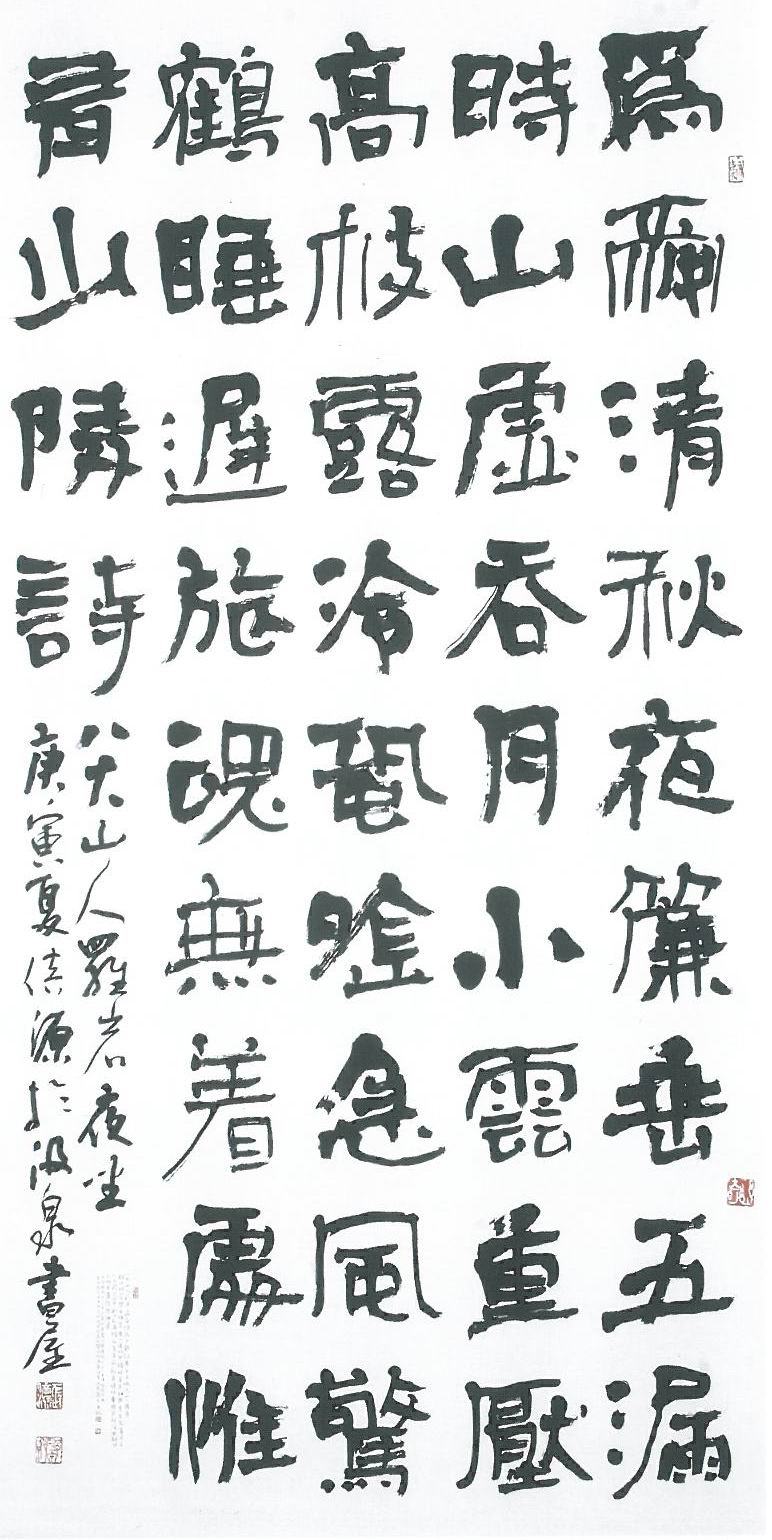 爲爾清秋夜簾垂五漏
時山虛吞月小雲重壓
高枝露冷蛩唫急風驚
鶴睡遲旅魂無着處惟
看少陵詩
八大山人羅岩夜坐
庚寅夏佶源於汲泉書屋